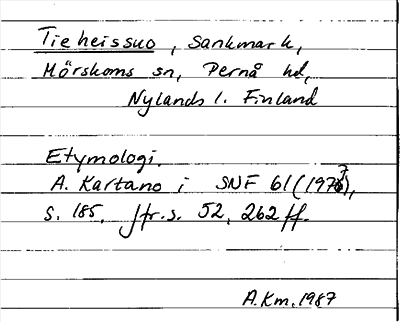 Tieheissuo, Sankmark,
Mörskoms sn, Pernå hd,
Nylands l. Finland
Etymologi.
A. Kartano i SNF 61 (1977),
s. 185. Jfr. s. 52, 262 ff.
A.Km. 1987